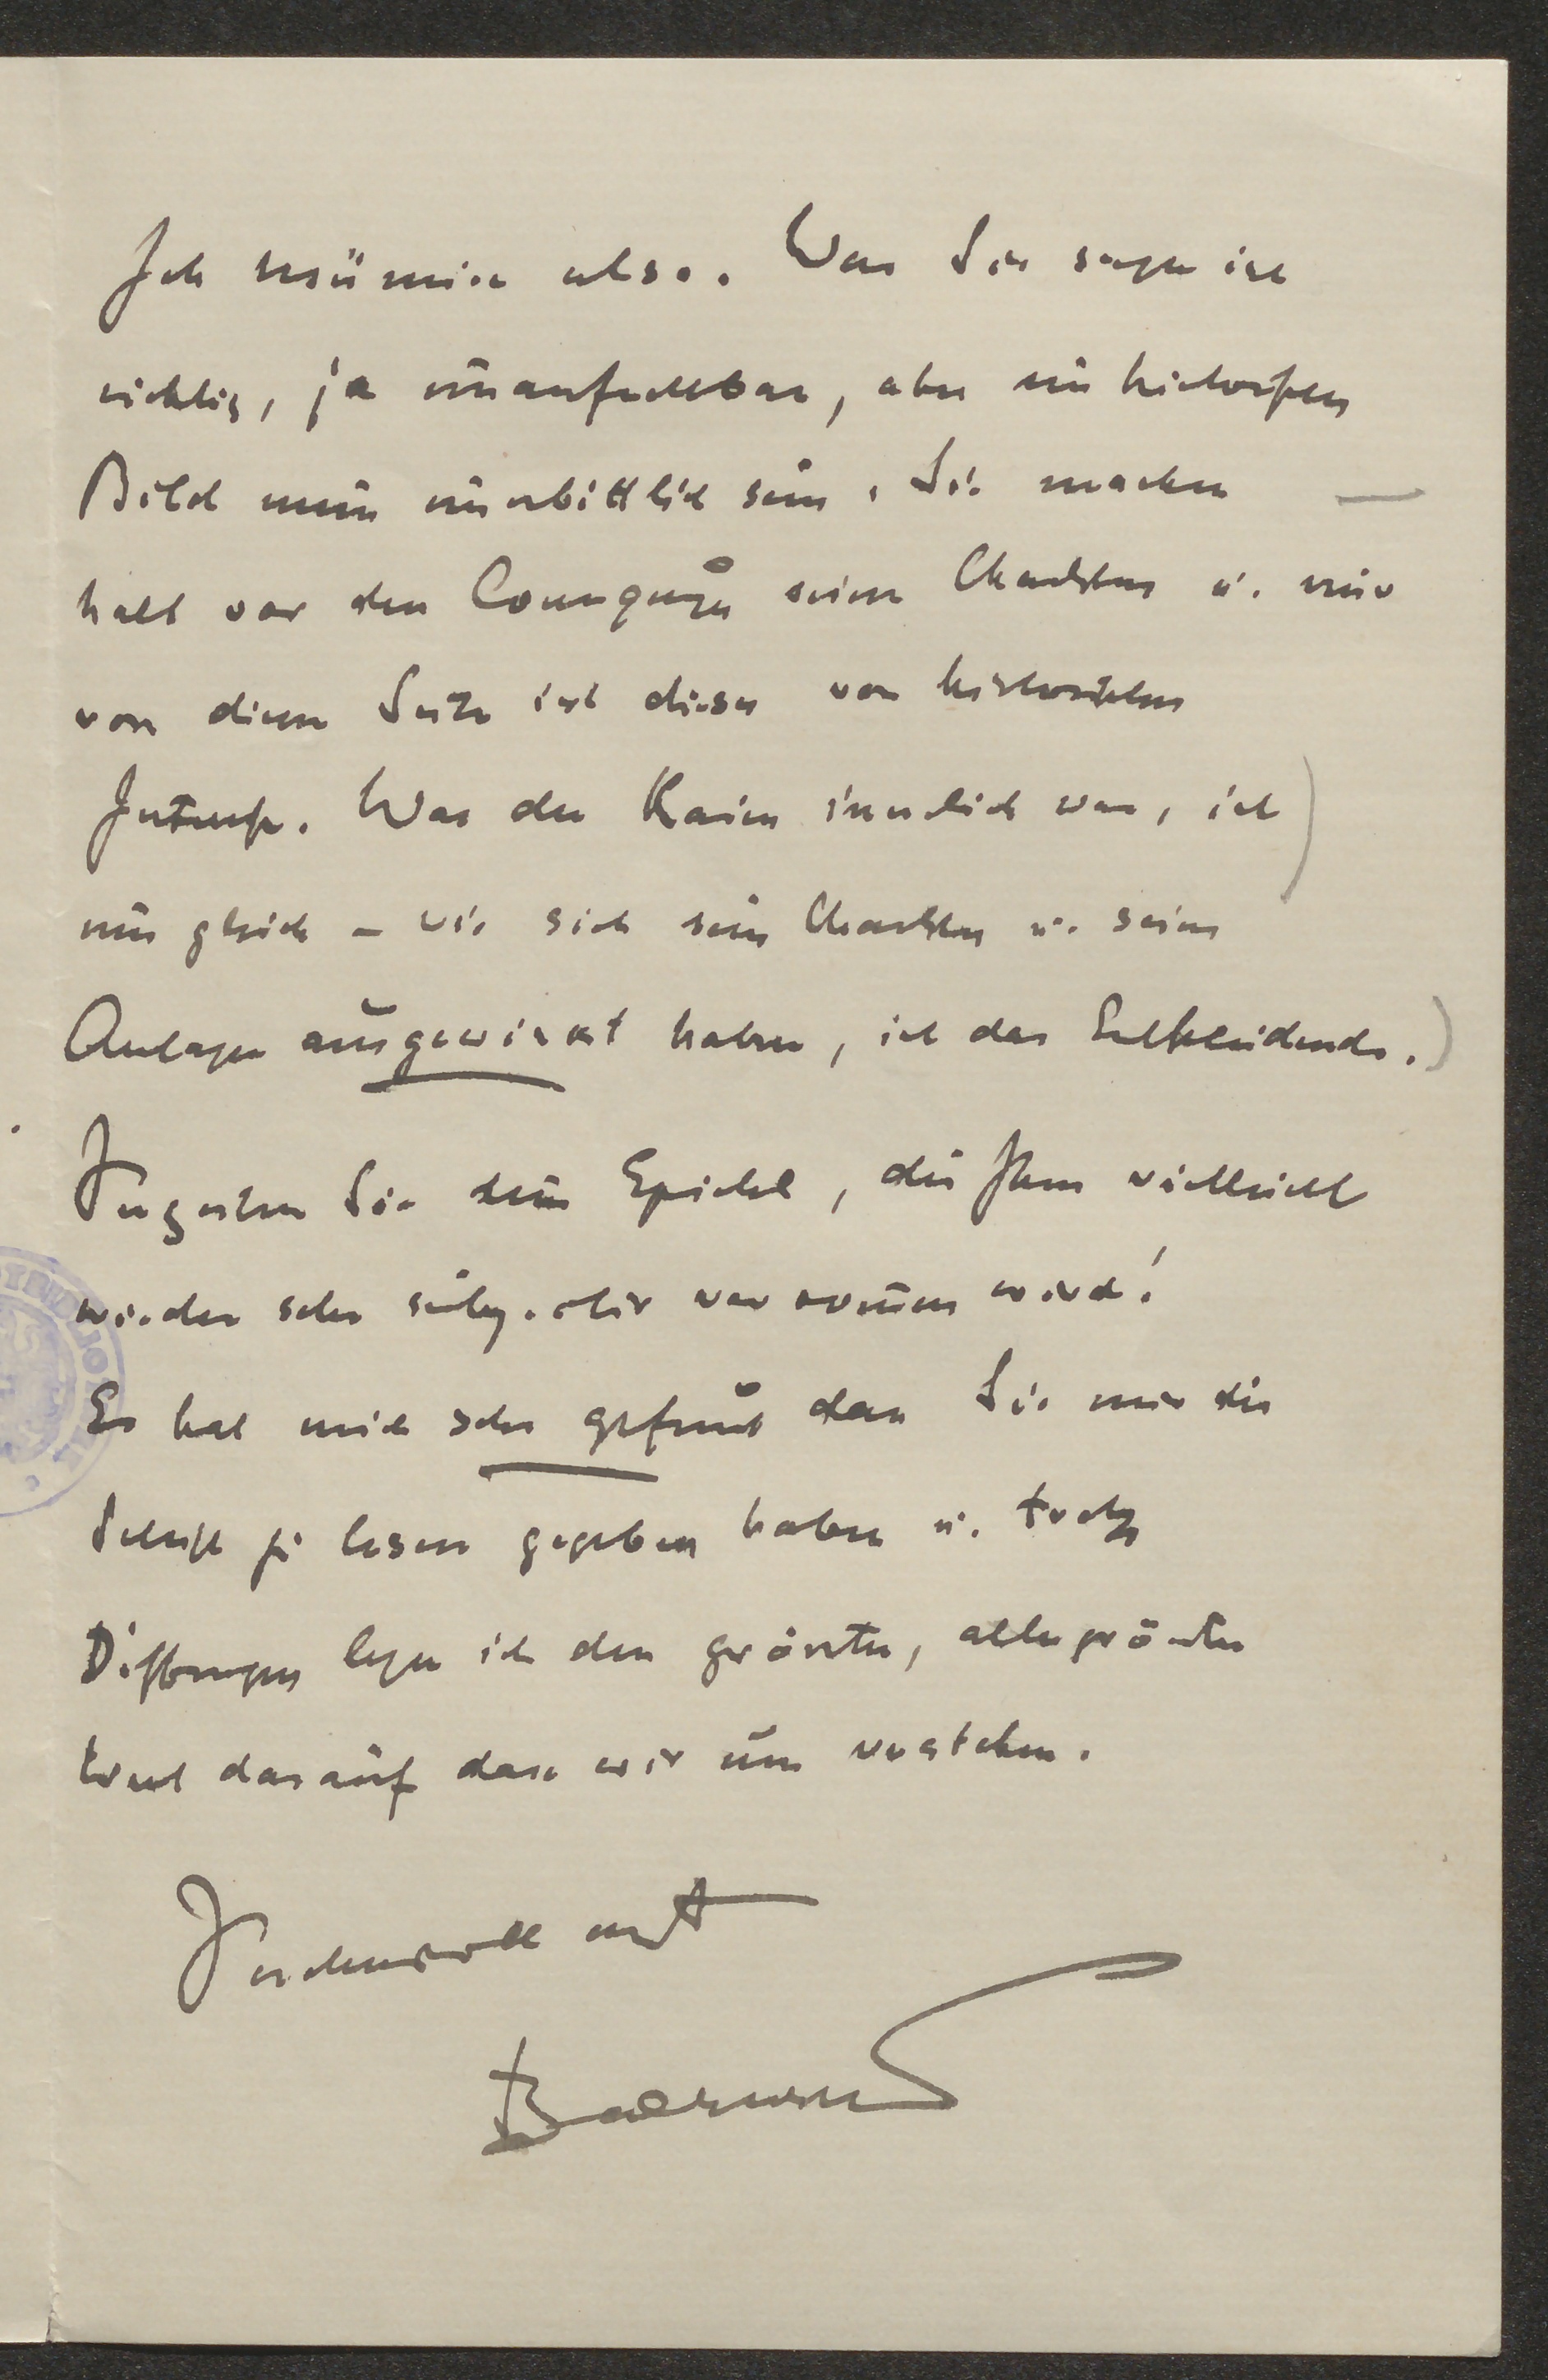 Ich resümire also. Was Sie sagen ist
richtig, ja unanfechtbar, aber ein historisches
Bild muss unerbittlich sein. Sie machen
halt vor den Consequenzen seines Charakters u. nur
von dieser Seite ist dieser von historischem
Interesse. Was der Kaiser innerlich war, ist
uns gleich – wie sich sein Charakter u. seine
Anlagen ausgewirkt haben, ist das Entscheidende.
Vergeben Sie dem Epistel, die Ihnen vielleicht
wieder sehr subjectiv vorkommen wird!
Es hat mich sehr gefreut dass Sie mir die
Schrift zu lesen gegeben haben u. trotz
Differenzen lege ich den grössten, allergrössten
Wert darauf dass wir uns verstehen.
Verehrungsvollst